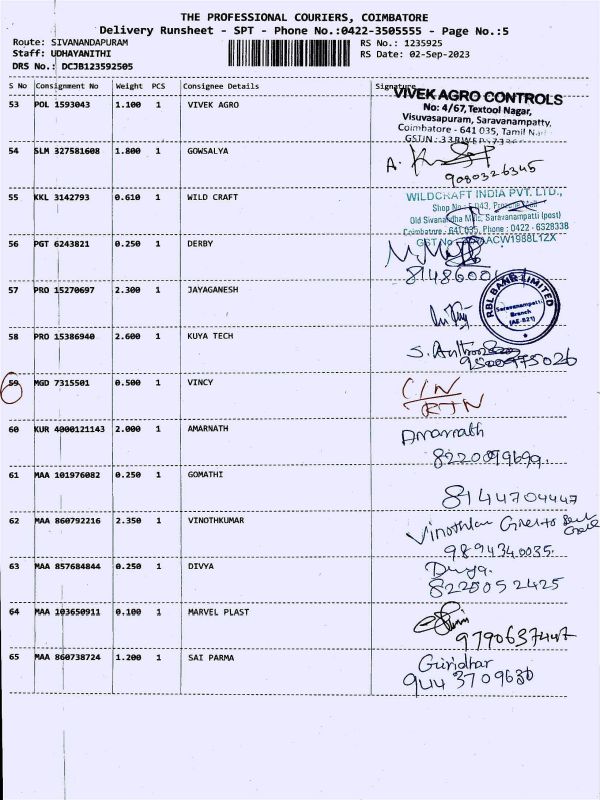 THE PROFESSIONAL COURIERS, COIMBATORE
Delivery Runsheet - SPT - Phone No.:0422-3505555 - Page No.:5
Route: SIVANANDAPURAM RS No.: 1235925
Staff: UDHAYANITHI RS Date: 02-Sep-2023
DRS No.: DCJB123592505
S No Consignment No Weight PCS Consignee Details Signature
53 POL 1593043 1.100 1 VIVEK AGRO
VIVEK AGRO CONTROLS
No: 4/67, Textool Nagar,
Visuvasapuram, Saravanampatty,
Coimbatore - 641 035, Tamil
GSTIN :
54 SLM 327581608 1.800 1 GOWSALYA
A.
9080326345
55 KKL 3142793 0.610 1 WILD CRAFT
WILDCRAFT INDIA PVT. LTD.,
Shop No
Old Saravanampatti (post)
Coimbatore- 641 035, Phone : 0422 - 6328338
GST No
56 PGT 6243821 0.250 1 DERBY
57 PRO 15270697 2.300 1 JAYAGANESH
RBL BANK LIMITED
Saravanampatti
Branch
58 PRO 15386940 2.600 1 KUYA TECH
S.
9500975026
59 MGD 7315501 0.500 1 VINCY
C/N
RTN
60 KUR 4000121143 2.000 1 AMARNATH
Amarnath
61 MAA 101976082 0.250 1 GOMATHI
8144704447
62 MAA 860792216 2.350 1 VINOTHKUMAR
9894340035.
63 MAA 857684844 0.250 1 DIVYA
Divya.
8220052425
64 MAA 103650911 0.100 1 MARVEL PLAST
65 MAA 860738724 1.200 1 SAI PARMA
Giridhar
9443709630